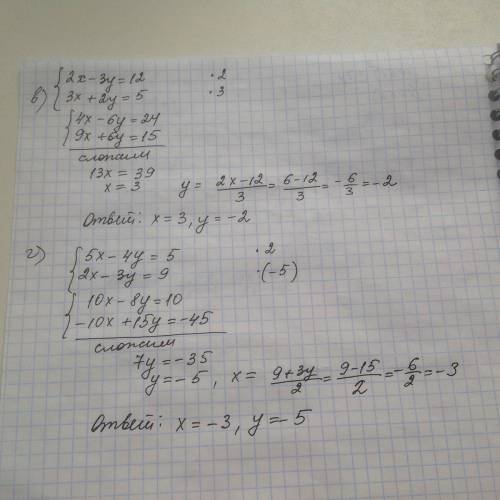 в) { 2x-3y=12 ·2
3x+2y=5 ·3
{ 4x-6y=24
9x+6y=15
сложим
13x=39
x=3 y= (2x-12)/3 = (6-12)/3 = -6/3 = -2
Ответ: x=3, y=-2
г) { 5x-4y=5 ·2
2x-3y=9 ·(-5)
{ 10x-8y=10
-10x+15y=-45
сложим
7y=-35
y=-5, x= (9+3y)/2 = (9-15)/2 = -6/2 = -3
Ответ: x=-3, y=-5